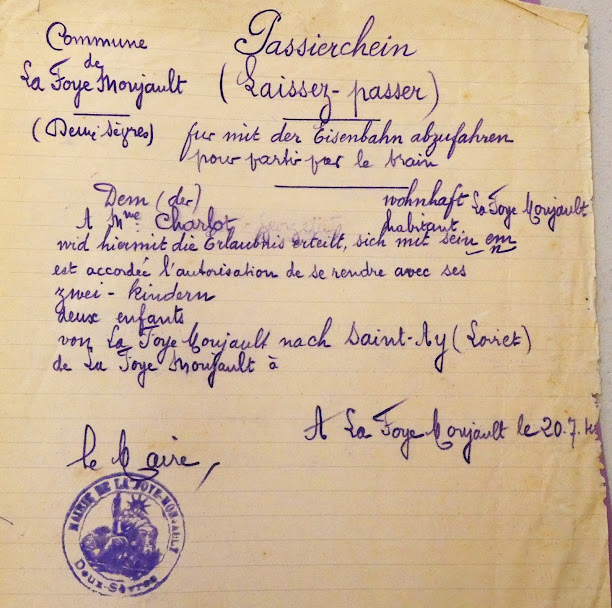 Commune
de
La Foye Monjault
(Deux Sèvres)
Passierchein
(Laissez-passer)
fur mit der Eisenbahn abzufahren
pour partir par le train
Dem (der) wohnhaft La Foye Monjault
A Mme Charlot habitant
wid hiermit die Erlaubnis erteilt, sich mit sein em
n
est accordée l'autorisation de se rendre avec ses
zwei - kindern
deux enfants
von La Foye Monjault nach Saint-Ay (Loiret)
de La Foye Monjault à
A La Foye Monjault le 20.7.
le Maire,
MAIRIE DE LA FOYE-MONJAULT
Deux-Sèvres